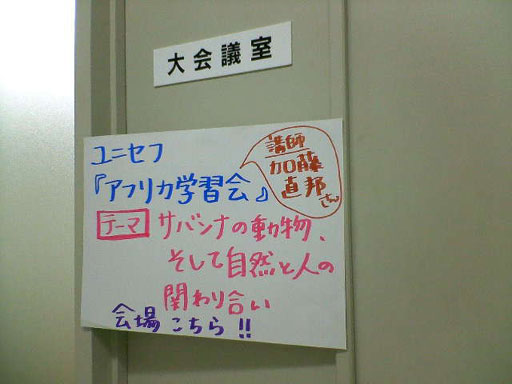 大会議室
ユニセフ
『アフリカ学習会』
講師
加藤
直邦
さん
テーマ サバンナの動物、
そして自然と人の
関わり合い
会場 こちら!!